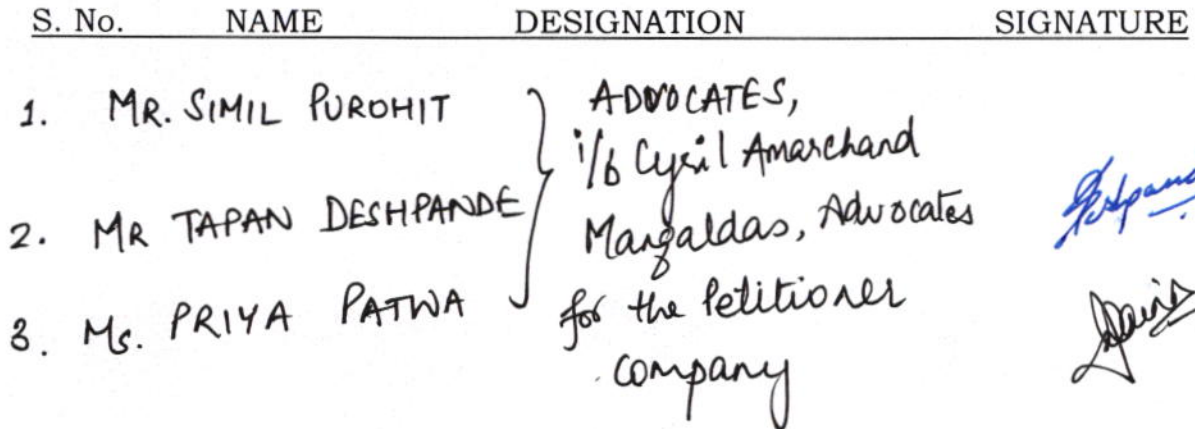 S. No. NAME DESIGNATION SIGNATURE
1. MR. SIMIL PUROHIT
2. MR TAPAN DESHPANDE
3. Ms. PRIYA PATWA
ADVOCATES,
i/b Cyril Amarchand
Mangaldas, Advocates
for the Petitioner
company